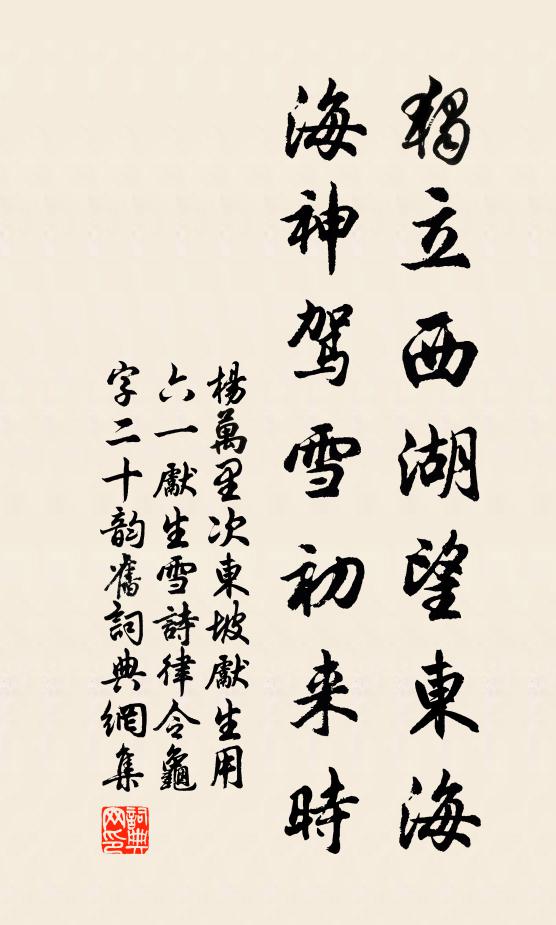 獨立西湖望東海
海神駕雪初来時
楊萬里次東坡獻生用
六一獻生雪詩律令龜
字二十韵舊詞典網集
詞典网印